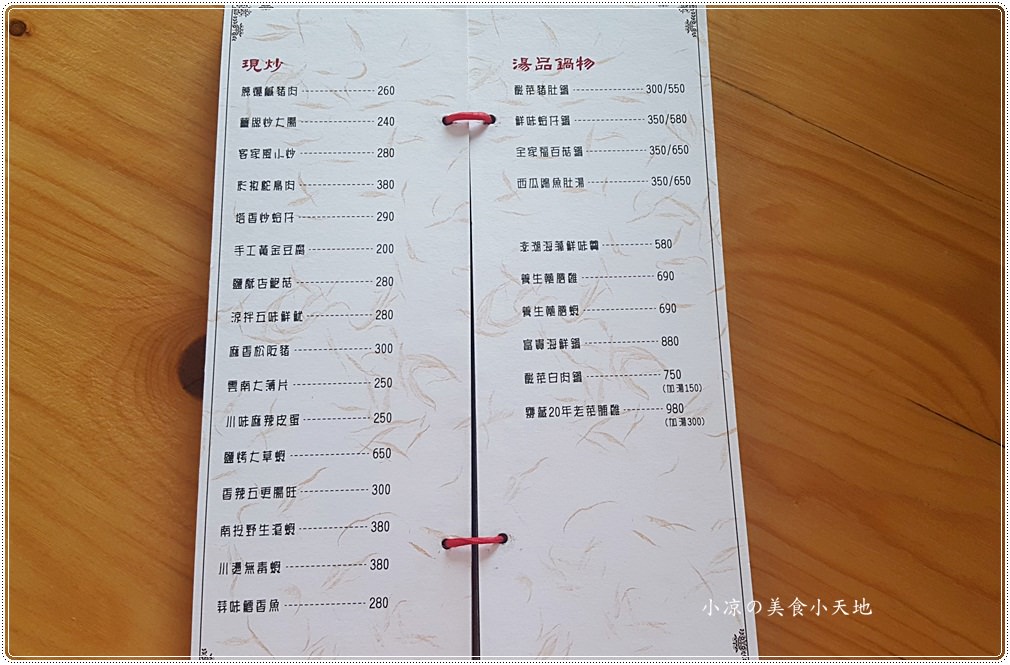 現炒
脆爆鹹豬肉 260
薑絲炒大腸 240
客家風小炒 280
彩椒鴕鳥肉 380
塔香炒蛤仔 290
手工黃金豆腐 200
鹽酥杏鮑菇 280
涼拌五味鮮魷 280
麻香松阪豬 300
雲南大薄片 250
川味麻辣皮蛋 250
鹽烤大草蝦 650
香辣五更腸旺 300
南投野生溪蝦 380
川燙無毒蝦 380
蒜味鱈香魚 280
湯品鍋物
酸菜豬肚鍋 300/550
鮮味蛤仔鍋 350/580
全家福百菇鍋 350/650
西瓜綿魚肚湯 350/650
澎湖海藻鮮味羹 580
養生藥膳雞 690
養生藥膳蝦 690
富貴海鮮鍋 880
酸菜白肉鍋 750
(加湯150)
甕藏20年老菜脯雞 980
(加湯300)
小凉の美食小天地